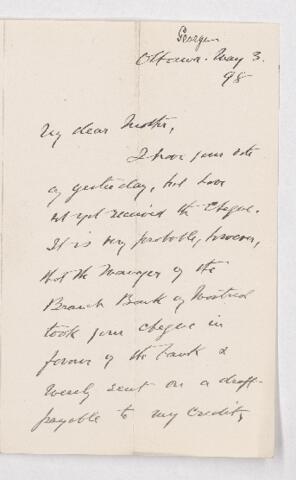 George
Ottawa. May 3.
98
My dear Mother,
I have your note
of yesterday, but have
not yet received the cheque.
It is very probable, however,
that the Manager of the
Branch Bank of Montreal
took your cheque in
favour of the bank &
merely sent on a draft
payable to my credit,